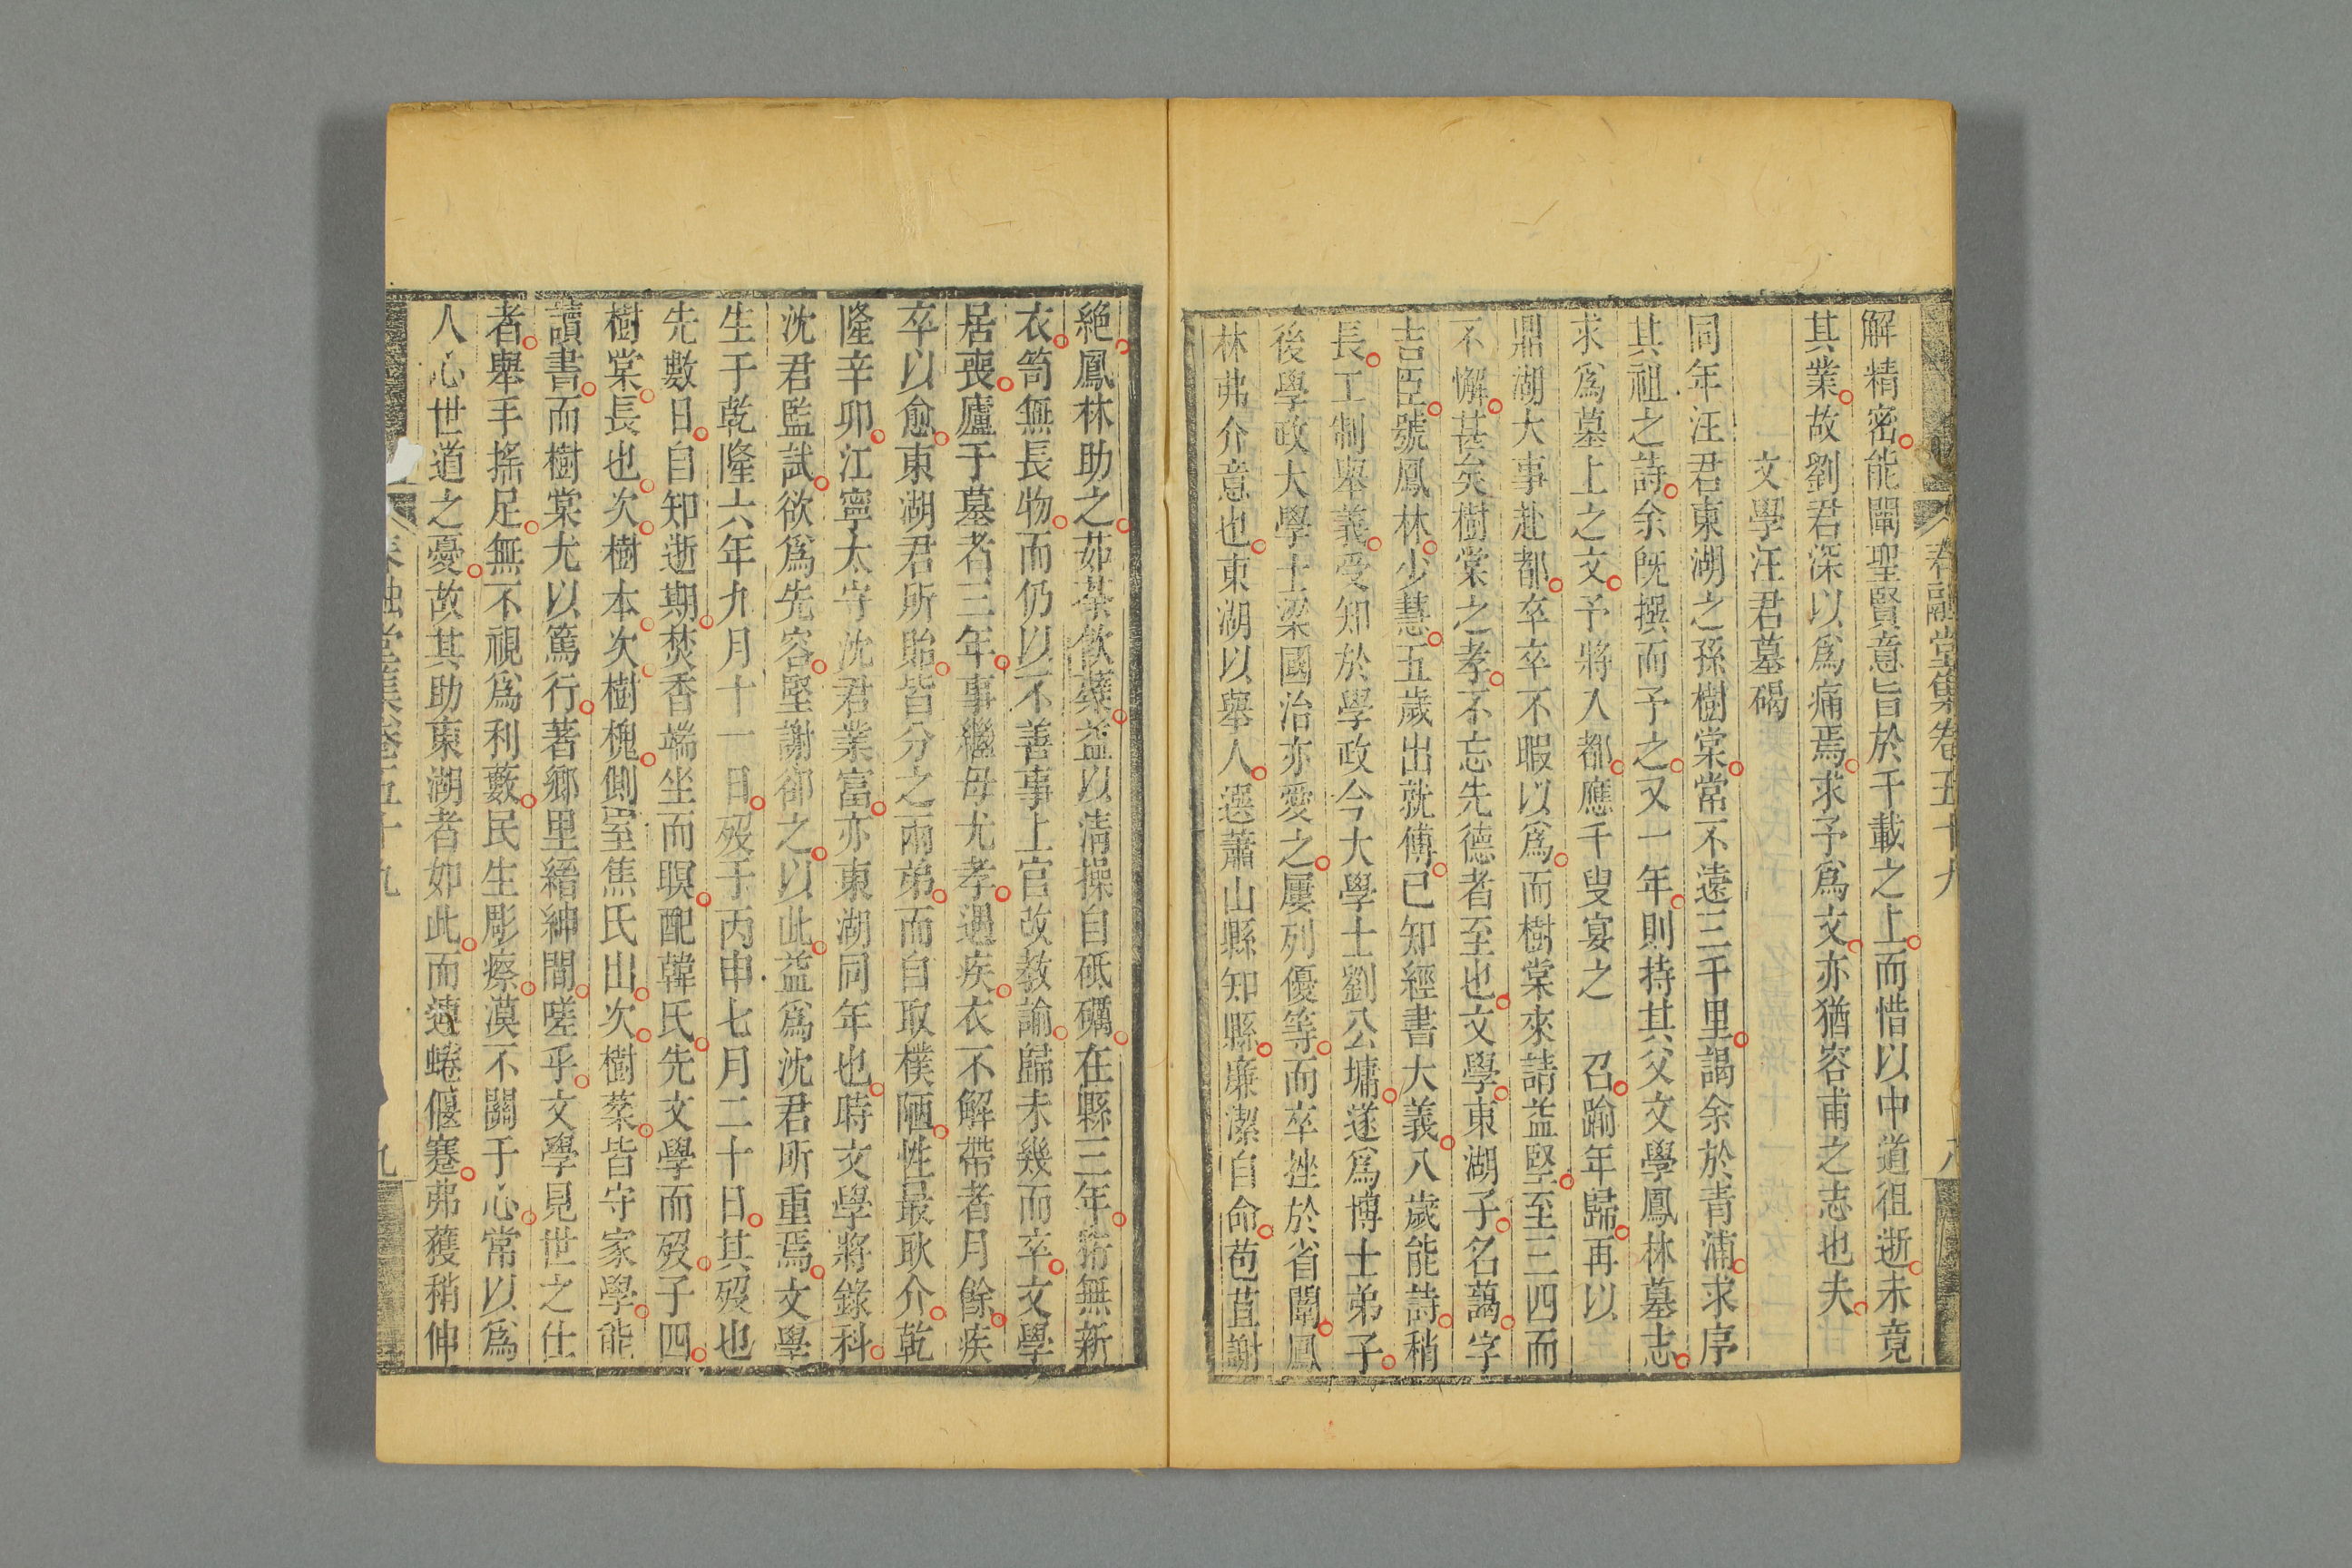 春融堂集卷五十九
八
解精密能闡聖賢意旨於千載之上而惜以中道徂逝未竟
其業故劉君深以爲痛焉求予爲文亦猶容甫之志也夫
文學汪君墓碣
同年汪君東湖之孫樹棠常不遠三千里謁余於青浦求序
其祖之詩余旣撰而予之又一年則持其父文學鳳林墓志
求爲墓上之文予將入都應千叟宴之 召踰年歸再以
鼎湖大事赴都卒卒不暇以爲而樹棠來請益堅至三四而
不懈甚矣樹棠之孝不忘先德者至也文學東湖子名萬字
吉臣號鳳林少慧五歲出就傅已知經書大義八歲能詩稍
長工制舉義受知於學政今大學士劉公墉遂爲博士弟子
後學政大學士梁國治亦愛之屢列優等而卒挫於省闈鳳
林弗介意也東湖以舉人選蕭山縣知縣廉潔自命苞苴謝
絕鳳林助之茹荼飲蘗益以淸操自砥礪在縣三年笥無新
衣笥無長物而仍以不善事上官改教諭歸未幾而卒文學
居喪廬于墓者三年事繼母尤孝遇疾衣不解帶者月餘疾
卒以愈東湖君所貽皆分之兩弟而自取樸陋性最耿介乾
隆辛卯江寧太守沈君業富亦東湖同年也時文學將錄科
沈君監試欲爲先容堅謝卻之以此益爲沈君所重焉文學
生于乾隆六年九月十一日歿于丙申七月二十日其歿也
先數日自知逝期焚香端坐而暝配韓氏先文學而歿子四
樹棠長也次樹本次樹槐側室焦氏出次樹棻皆守家學能
讀書而樹棠尤以篤行著鄉里縉紳間嗟乎文學見世之仕
者舉手搖足無不視爲利藪民生彫瘵漠不關于心常以爲
人心世道之憂故其助東湖者如此而連蜷偃蹇弗獲稍伸
春融堂集卷五十九
九